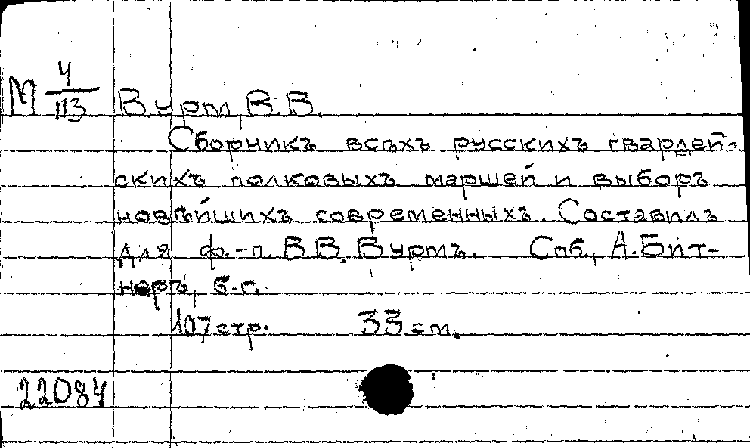 М 4/113 Вурм, В.В.
Сборникъ всѣхъ русскихъ гвардей-
скихъ полковыхъ маршей и выборъ
новѣйшихъ современныхъ. Составилъ
для ф.-п. В.В. Вурмъ. Спб., А. Бит-
неръ, б.г.
107 стр. 33 см.
22084